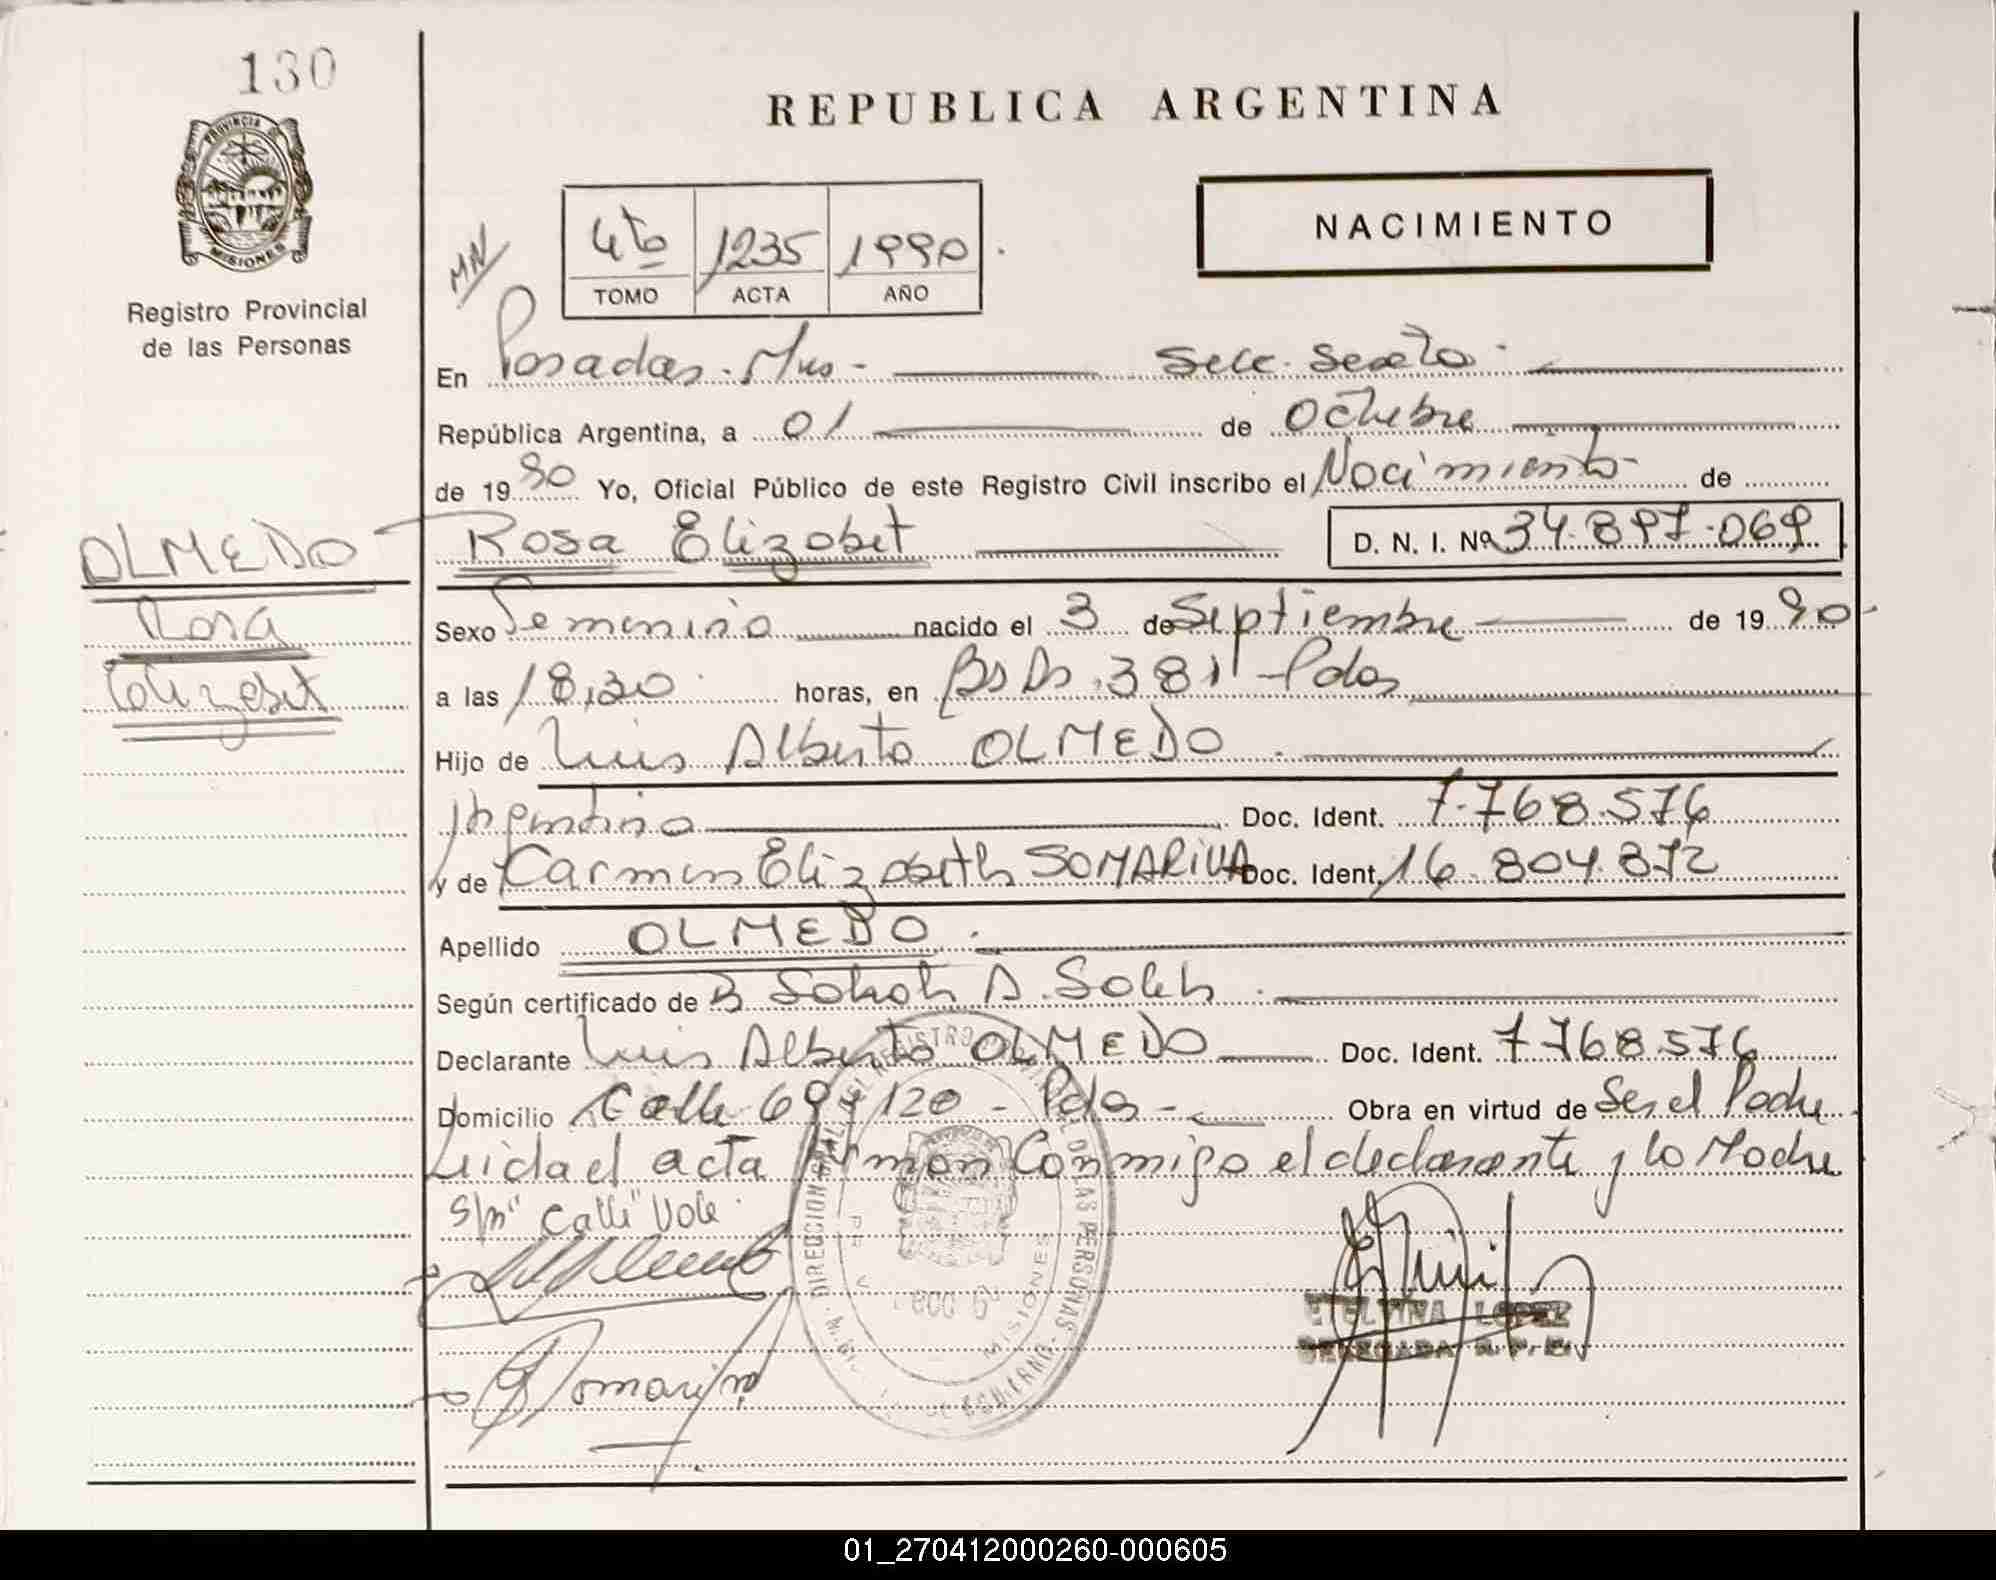 130
REPUBLICA ARGENTINA
PROVINCIA DE
MISIONES
Registro Provincial
de las Personas
MN
4to 1235 1990
TOMO ACTA AÑO
NACIMIENTO
En Posadas. Mnes - Secc. Sexta
República Argentina, a 01 de Octubre
de 1990 Yo, Oficial Público de este Registro Civil inscribo el Nacimiento de
OLMEDO
Rosa Elizabet D. N. I. Nº 34.897.069
Rosa
Elizabet
Sexo Femenino nacido el 3 de Septiembre de 1990
a las 18,30 horas, en Bs Ds. 381 - Pdas
Hijo de Luis Alberto OLMEDO
Argentino Doc. Ident. 7.768.576
y de Carmen Elizabeth SOMARIVA Doc. Ident. 16.804.872
Apellido OLMEDO
Según certificado de B A.
Declarante Luis Alberto OLMEDO Doc. Ident. 7.768.576
Domicilio Calle 69 y 120 - Pdas - Obra en virtud de Ser el Padre
Leida el acta firman conmigo el declarante y la Madre
S/m "Calli" Vale
DE LAS PERSONAS
MISIONES
ETELVINA LOPEZ
DELEGADA R. P. P.
01_270412000260-000605